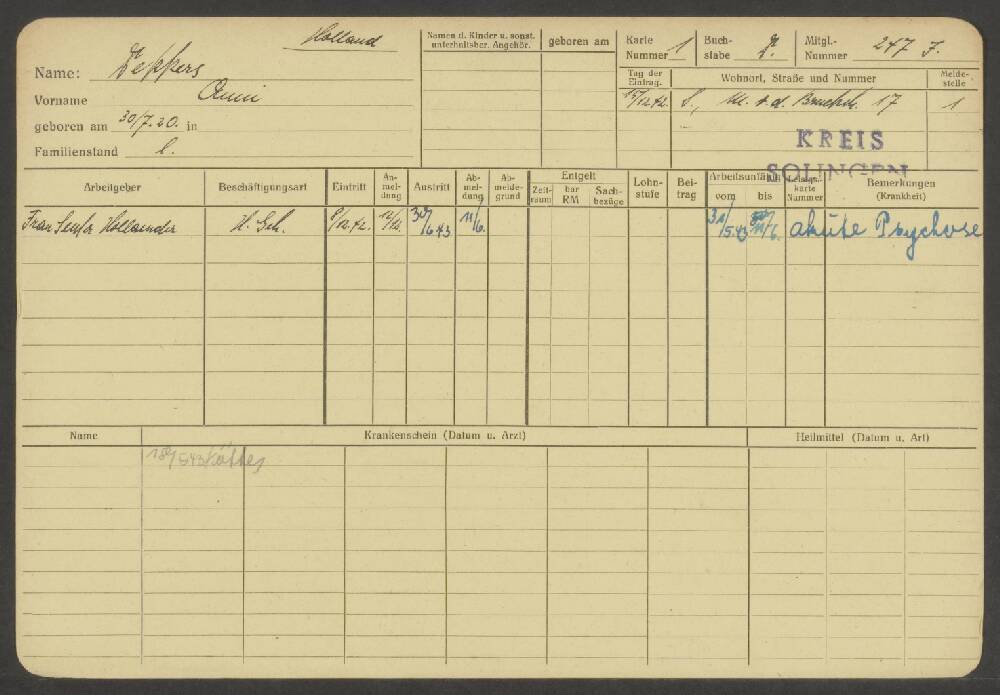 Holland
Namen d. Kinder u. sonst. unterhaltsber. Angehör.
geboren am
Karte Nummer 1
Buchstabe Z.
Mitgl.-Nummer 247 F.
Name: Zeppers
Vorname Anni
geboren am 30/7.20. in
Familienstand l.
Tag der Eintrag.
Wohnort, Straße und Nummer
Meldestelle
S., 17 1
KREIS
SOLINGEN
Arbeitgeber
Beschäftigungsart
Eintritt
Anmeldung
Austritt
Abmeldung
Abmeldegrund
Entgelt
Zeitraum
bar RM
Sachbezüge
Lohnstufe
Beitrag
Arbeitsunfähig
vom
bis
karte Nummer
Bemerkungen (Krankheit)
Frau Hollaender H. Geh. 8/12.42. 12/12. 11/6. 31/5.43 akute Psychose
Name
Krankenschein (Datum u. Arzt)
Heilmittel (Datum u. Art)